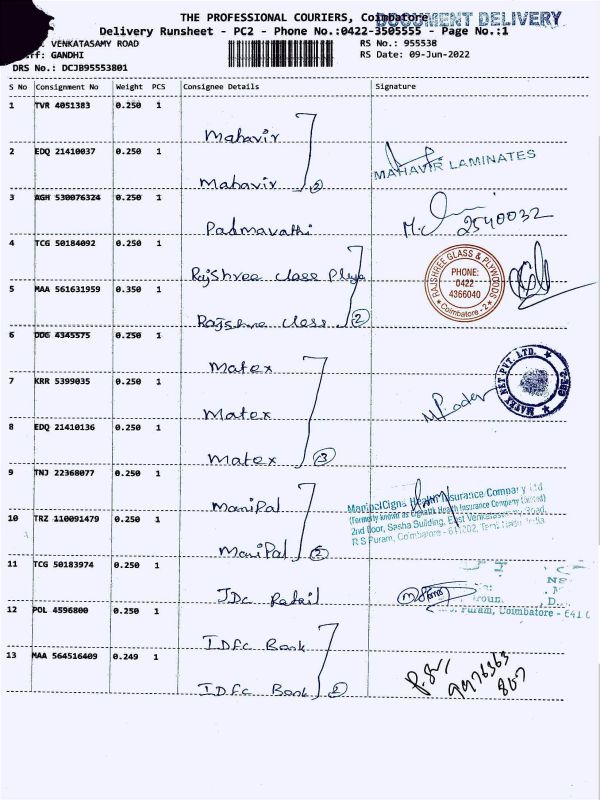 THE PROFESSIONAL COURIERS, Coimbatore
DOCUMENT DELIVERY
Delivery Runsheet - PC2 - Phone No.:0422-3505555 - Page No.:1
VENKATASAMY ROAD
RS No.: 955538
GANDHI
RS Date: 09-Jun-2022
DRS No.: DCJB95553801
S No Consignment No Weight PCS Consignee Details Signature
1 TVR 4051383 0.250 1
Mahavir
2 EDQ 21410037 0.250 1
MAHAVIR LAMINATES
Mahavir 2
3 AGH 530076324 0.250 1
Padmavathi
2540032
4 TCG 50184092 0.250 1
RajShree Glass
RAJSHREE GLASS & PLYWOODS
PHONE:
0422
4366040
Coimbatore - 2
5 MAA 561631959 0.350 1
Glass 2
6 DDG 4345575 0.250 1
Matex
MATEX NET PVT. LTD.
7 KRR 5399035 0.250 1
Matex
8 EDQ 21410136 0.250 1
Matex 3
9 TNJ 22368077 0.250 1
ManiPal
ManipalCigna Health Insurance Company Ltd
(Formerly known as CignaTTK Health Insurance Company Limited)
2nd Door, Sasha Building, East Venkatasamy Road,
R S Puram, Coimbatore - 641202, Tamil Nadu India
10 TRZ 110091479 0.250 1
ManiPal 2
11 TCG 50183974 0.250 1
JDC Retail
Puram, Coimbatore - 641
12 POL 4596800 0.250 1
IDFC Bank
13 MAA 564516409 0.249 1
IDFC Bank 2
9976363
807